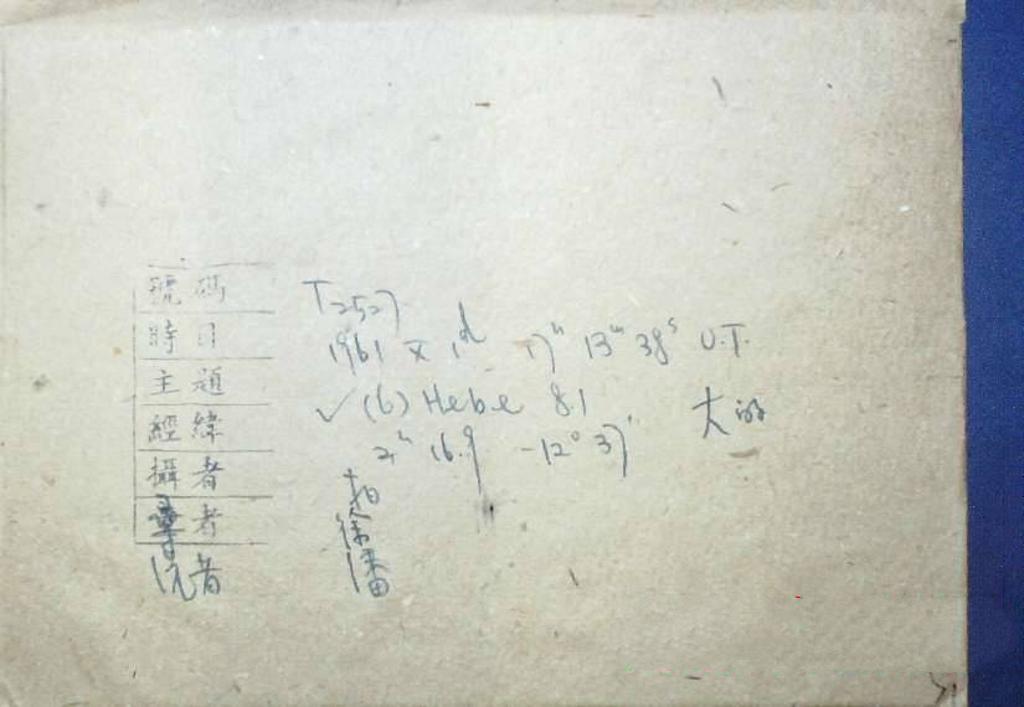 號碼 T2527
時日 1961 X 1d 17h 13m 38s U.T.
主題 ✓ (6) Hebe 8.1
經緯 2h 16.9 -12° 37' 大的
攝者
者 徐
者 潘